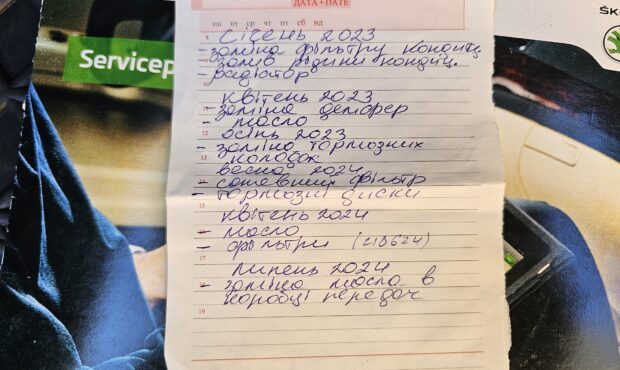 ДАТА • DATE
пн вт ср чт пт сб нд
ŠKO
Servicep
8 СІЧЕНЬ 2023
9 - заміна фільтру кондиц.
залив рідини кондиц.
10 - радіатор
КВІТЕНЬ 2023
11 - заміна демфер
- масло
12 ОСІНЬ 2023
- заміна тормозних
13 колодок
весна 2024
14 - салевший фільтр
- тормозні диски
15
КВІТЕНЬ 2024
16 - масло
- фільтри (213624)
17
Липень 2024
18 - заміна масла в
коробці передач
19